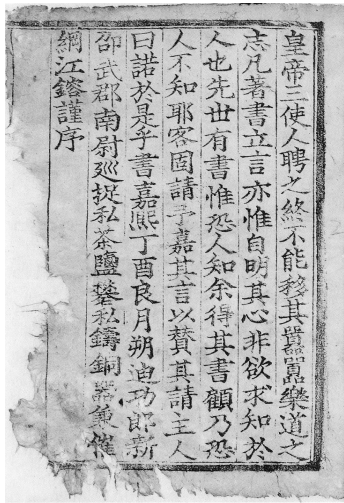 皇帝三使人聘之終不能移其囂囂樂道之
志凡著書立言亦惟自明其心非欲求知於
人也先世有書惟恐人知余得其書顧乃恐
人不知耶客固請予嘉其言以贊其請主人
曰諾於是乎書嘉熙丁酉良月朔迪功郎新
邵武郡南尉廵捉私茶鹽礬私鑄銅器兼催
綱江鎔謹序